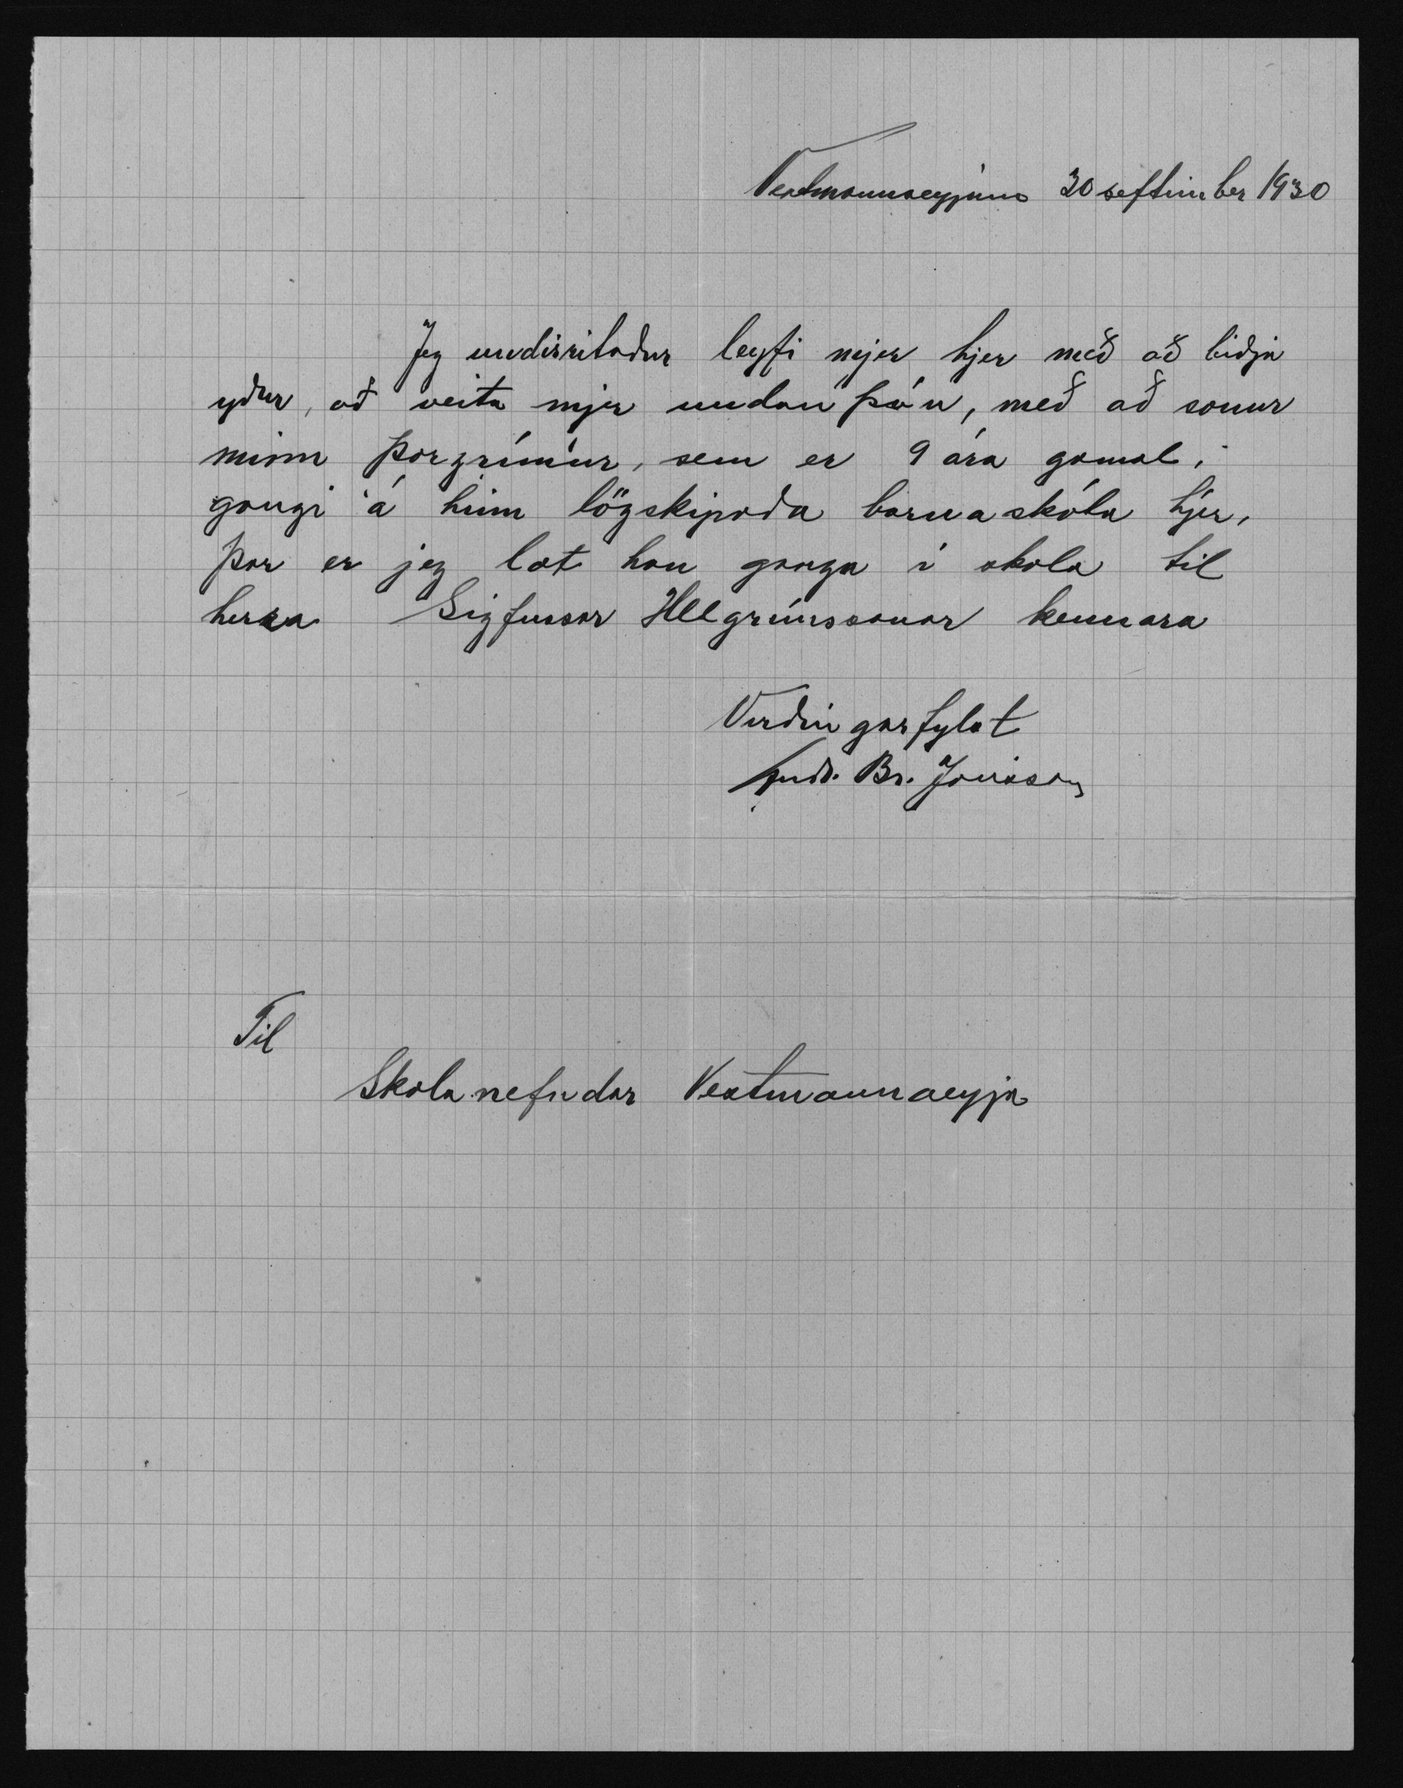 Vestmannaeyjum 30 seftimber 1930
Jeg undirritaður leyfi mjer hjer með að biðja
yður, að veita mjer undanþáu, með að sonur
minn Þorgrímur, sem er 9 ára gamal,
gangi á hinn lögskipaða barnaskóla hjer,
þar er jeg læt han ganga í skola til
herra Sigfussar Hllgrímssonar kennara
Virðingarfylst
Guðd. Br. Jónsson
Til
Skolanefndar Vestmannaeyja